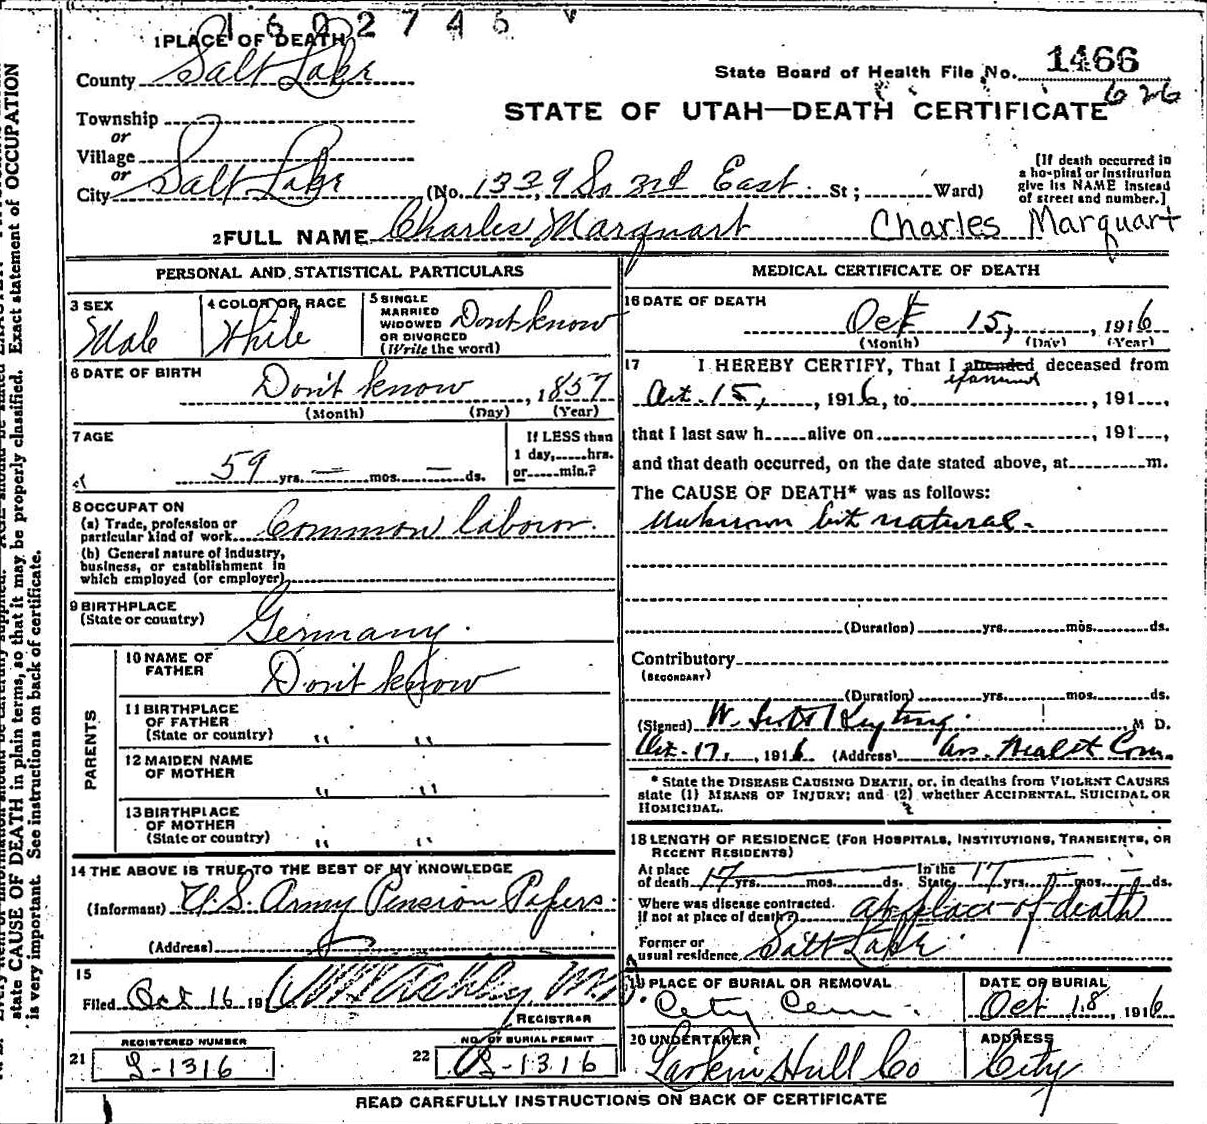 1602745 v
1 PLACE OF DEATH
County Salt Lake
State Board of Health File No. 1466
626
STATE OF UTAH—DEATH CERTIFICATE
Township
or
Village
or
City Salt Lake (No. 1339 So 3rd East St; Ward)
[If death occurred in
a hospital or institution
give its NAME instead
of street and number.]
2 FULL NAME Charles Marquart Charles Marquart
PERSONAL AND STATISTICAL PARTICULARS
3 SEX
Male
4 COLOR OR RACE
White
5 SINGLE
MARRIED
WIDOWED
OR DIVORCED
(Write the word)
Don't know
6 DATE OF BIRTH
Don't know, 1857
(Month) (Day) (Year)
7 AGE
59 yrs. — mos. — ds.
If LESS than
1 day, hrs.
or min.?
8 OCCUPATION
(a) Trade, profession or
particular kind of work Common labour
(b) General nature of industry,
business, or establishment in
which employed (or employer)
9 BIRTHPLACE
(State or country) Germany.
PARENTS
10 NAME OF
FATHER Don't know
11 BIRTHPLACE
OF FATHER
(State or country) " "
12 MAIDEN NAME
OF MOTHER " "
13 BIRTHPLACE
OF MOTHER
(State or country) " "
14 THE ABOVE IS TRUE TO THE BEST OF MY KNOWLEDGE
(Informant) U.S. Army Pension Papers.
(Address)
15
Filed Oct 16 191 Ashby
REGISTRAR
REGISTERED NUMBER
21 L-1316
NO. OF BURIAL PERMIT
22 B-1316
MEDICAL CERTIFICATE OF DEATH
16 DATE OF DEATH
Oct 15, , 1916
(Month) (Day) (Year)
17 I HEREBY CERTIFY, That I attended deceased from
examined
Oct. 15, , 1916, to , 191 ,
that I last saw h alive on , 191 ,
and that death occurred, on the date stated above, at m.
The CAUSE OF DEATH* was as follows:
Unknown but natural.
(Duration) yrs. mos. ds.
Contributory
(SECONDARY)
(Duration) yrs. mos. ds.
(Signed) W. M D.
Oct. 17, , 1916 (Address) Health Com.
* State the DISEASE CAUSING DEATH, or, in deaths from VIOLENT CAUSES
state (1) MEANS OF INJURY; and (2) whether ACCIDENTAL, SUICIDAL OR
HOMICIDAL.
18 LENGTH OF RESIDENCE (FOR HOSPITALS, INSTITUTIONS, TRANSIENTS, OR
RECENT RESIDENTS)
At place
of death 17 yrs. mos. ds. In the
State 17 yrs. — mos. — ds.
Where was disease contracted,
if not at place of death? at place of death
Former or
usual residence Salt Lake
19 PLACE OF BURIAL OR REMOVAL
City Cem.
DATE OR BURIAL
Oct 18, 1916
20 UNDERTAKER
Larkin Hull Co
ADDRESS
City
READ CAREFULLY INSTRUCTIONS ON BACK OF CERTIFICATE
state CAUSE OF DEATH in plain terms, so that it may be properly classified. Exact statement of OCCUPATION
is very important. See instructions on back of certificate.